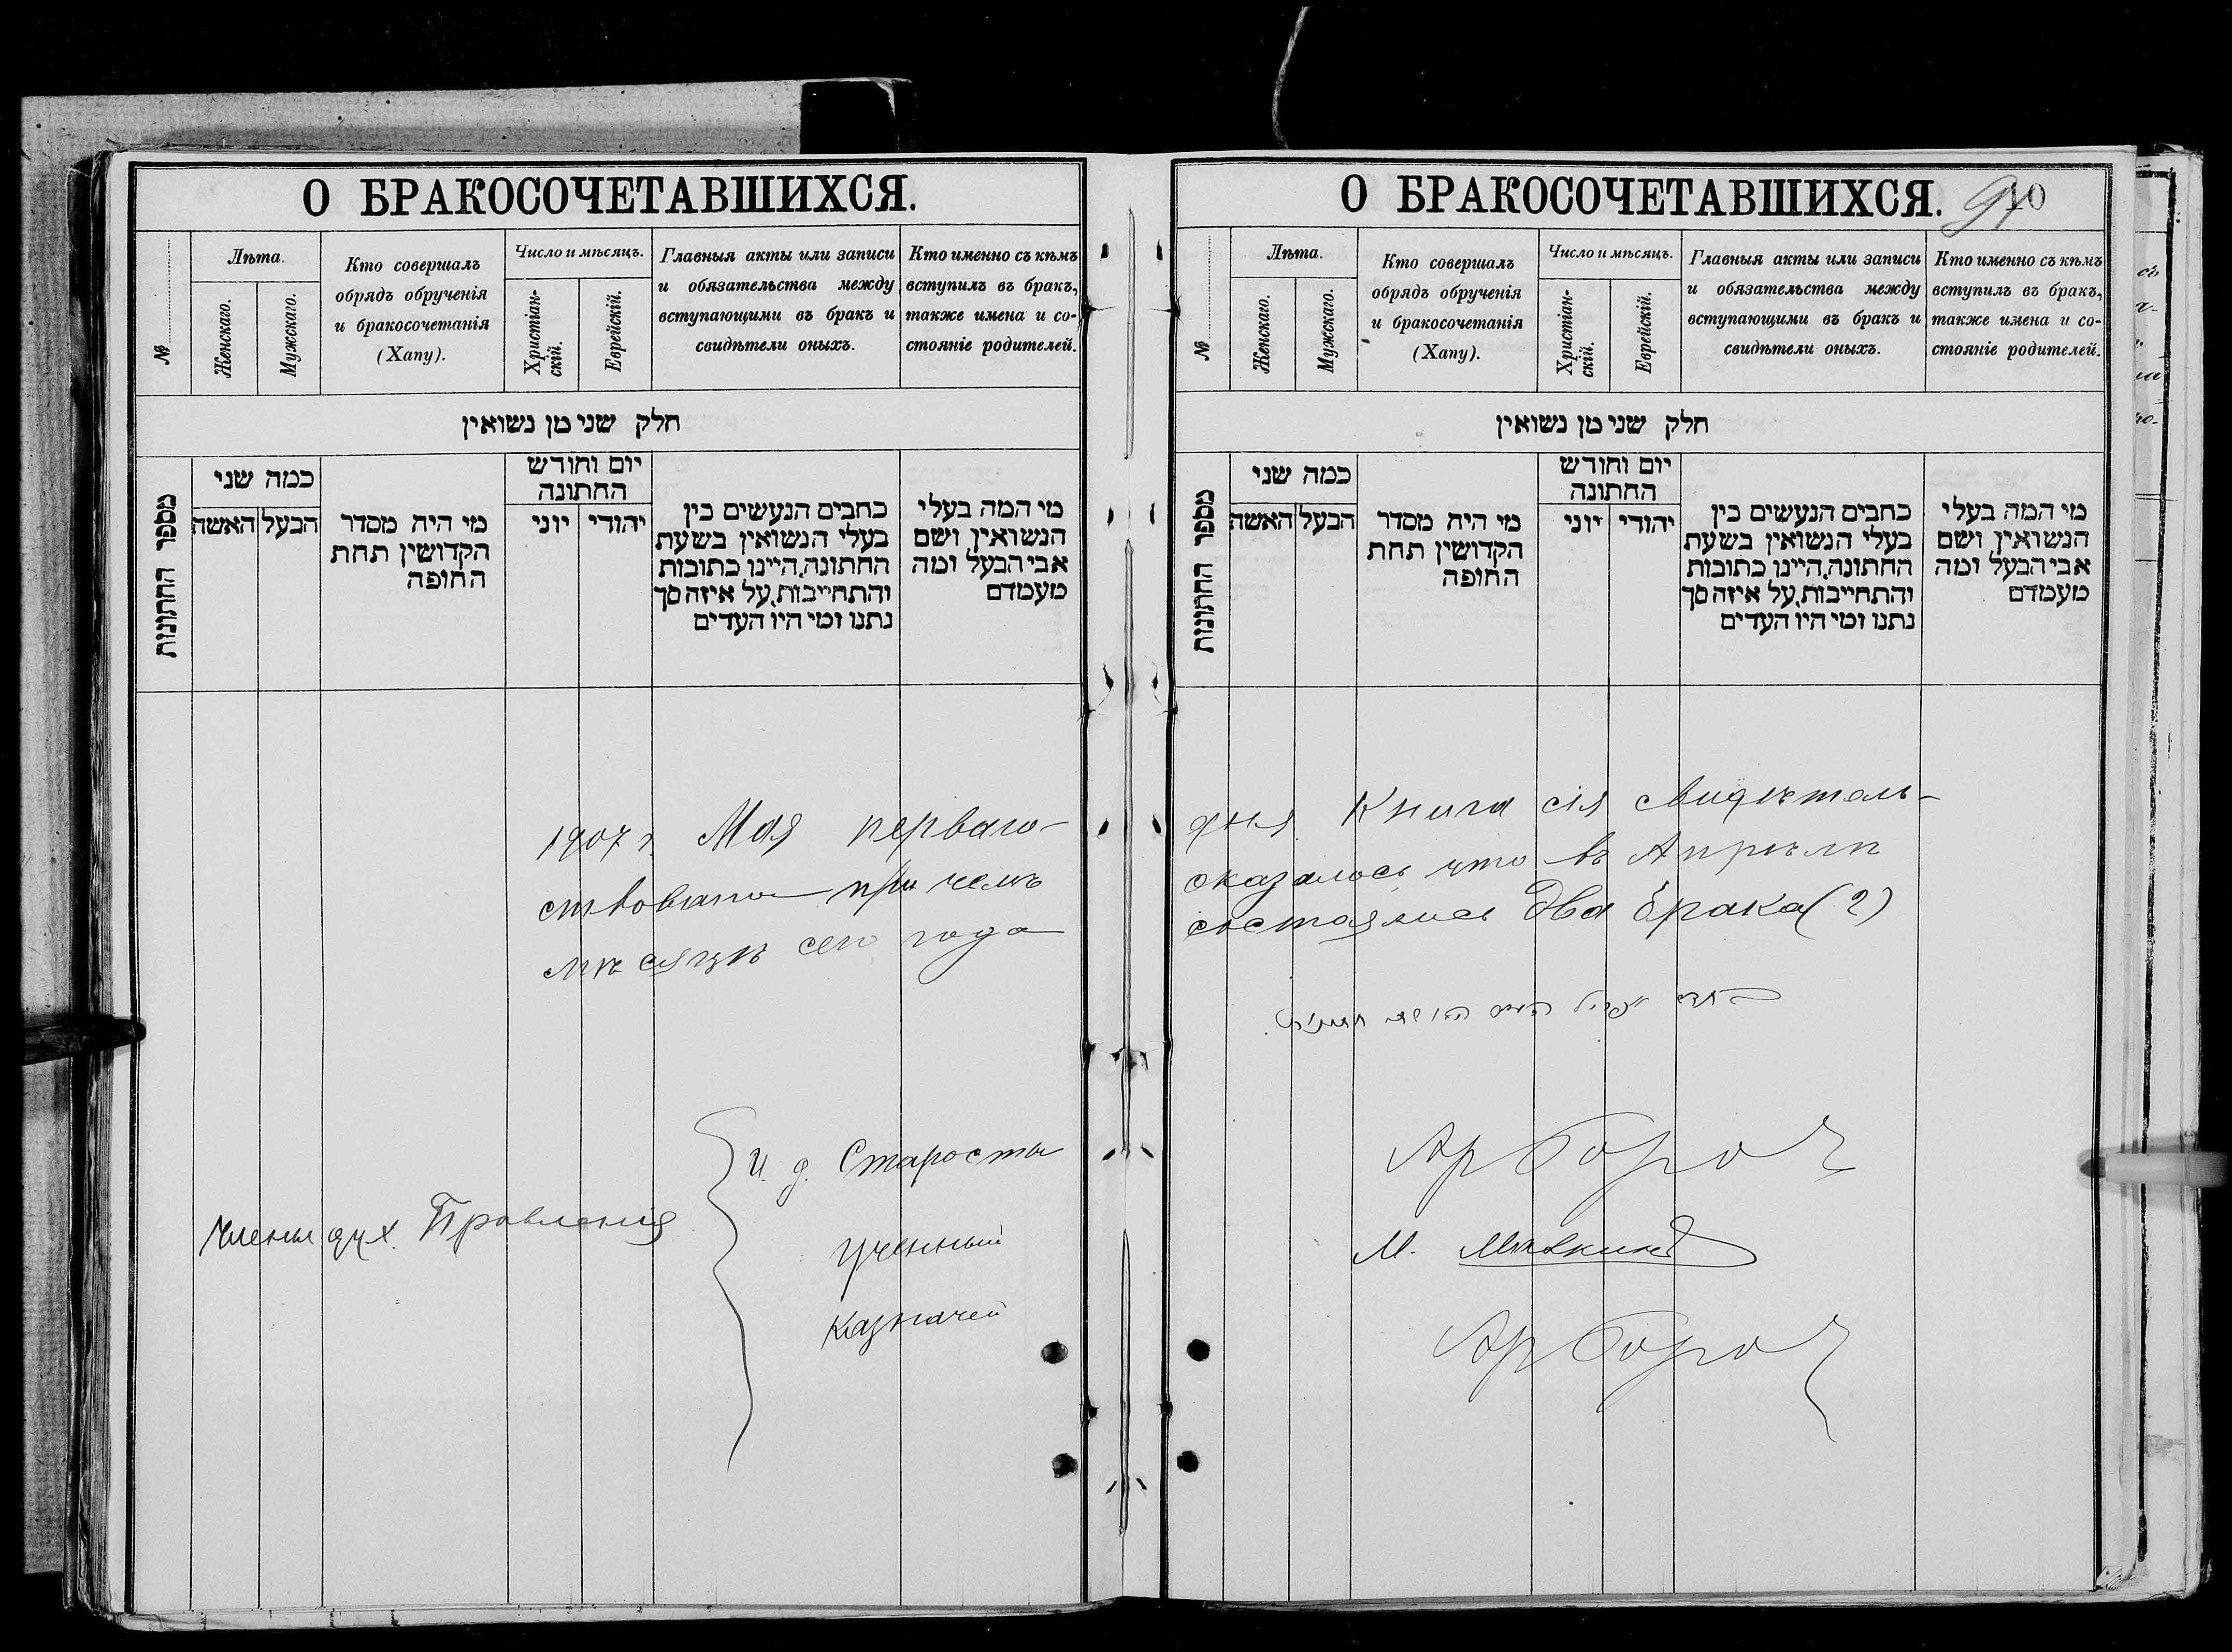 О БРАКОСОЧЕТАВШИХСЯ.
№
Лѣта.
Женскаго.
Мужскаго.
Кто совершалъ
обрядъ обрученія
и бракосочетанія
(Хапу).
Число и мѣсяцъ.
Христіан-
скій.
Еврейскій.
Главныя акты или записи
и обязательства между
вступающими въ бракъ и
свидѣтели оныхъ.
Кто именно съ кѣмъ
вступилъ въ бракъ,
также имена и со-
стояніе родителей.
חלק שני מן נשואין
מספר החתונות
כמה שני
האשה
הבעל
מי היה מסדר
הקדושין תחת
החופה
יום וחודש
החתונה
יוני
יהודי
כתבים הנעשים בין
בעלי הנשואין בשעת
החתונה, היינו כתובות
והתחייבות, על איזה סך
נתנו ומי היו העדים
מי המה בעלי
הנשואין ושם
אבי הבעל ומה
מעמדם
1907 г. Мая перваго
ствована при чемъ
мѣсяцѣ сего года
Члены дух. Правленія
И. д. Старосты
Ученный
Казначей
О БРАКОСОЧЕТАВШИХСЯ.
10
№
Лѣта.
Женскаго.
Мужскаго.
Кто совершалъ
обрядъ обрученія
и бракосочетанія
(Хапу).
Число и мѣсяцъ.
Христіан-
скій.
Еврейскій.
Главныя акты или записи
и обязательства между
вступающими въ бракъ и
свидѣтели оныхъ.
Кто именно съ кѣмъ
вступилъ въ бракъ,
также имена и со-
стояніе родителей.
חלק שני מן נשואין
מספר החתונות
כמה שני
האשה
הבעל
מי היה מסדר
הקדושין תחת
החופה
יום וחודש
החתונה
יוני
יהודי
כתבים הנעשים בין
בעלי הנשואין בשעת
החתונה, היינו כתובות
והתחייבות, על איזה סך
נתנו ומי היו העדים
מי המה בעלי
הנשואין ושם
אבי הבעל ומה
מעמדם
дня Книга сія свидѣтель-
оказалось что въ Апрѣлѣ
состоялись два брака (2)
М.